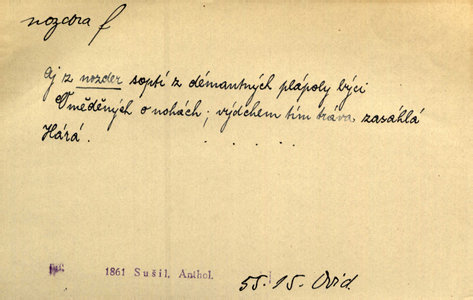 nozdra f
Aj z nozder soptí z démantných plápoly býci
O měděných o nohách; výdchem tím tráva zasáhlá
Hárá. . . . . .
1861 Sušil, Anthol.
55. 15. Ovid.